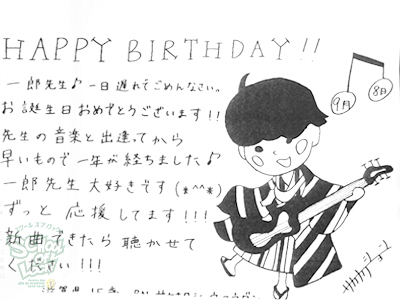 HAPPY BIRTHDAY!!
一郎先生♪一日遅れてごめんなさい。
お誕生日おめでとうございます!!
先生の音楽と出逢ってから
早いもので一年が経ちました♪
一郎先生大好きです(*^^*)
ずっと応援してます!!!
新曲できたら聴かせて
ください!!!
9月
8日